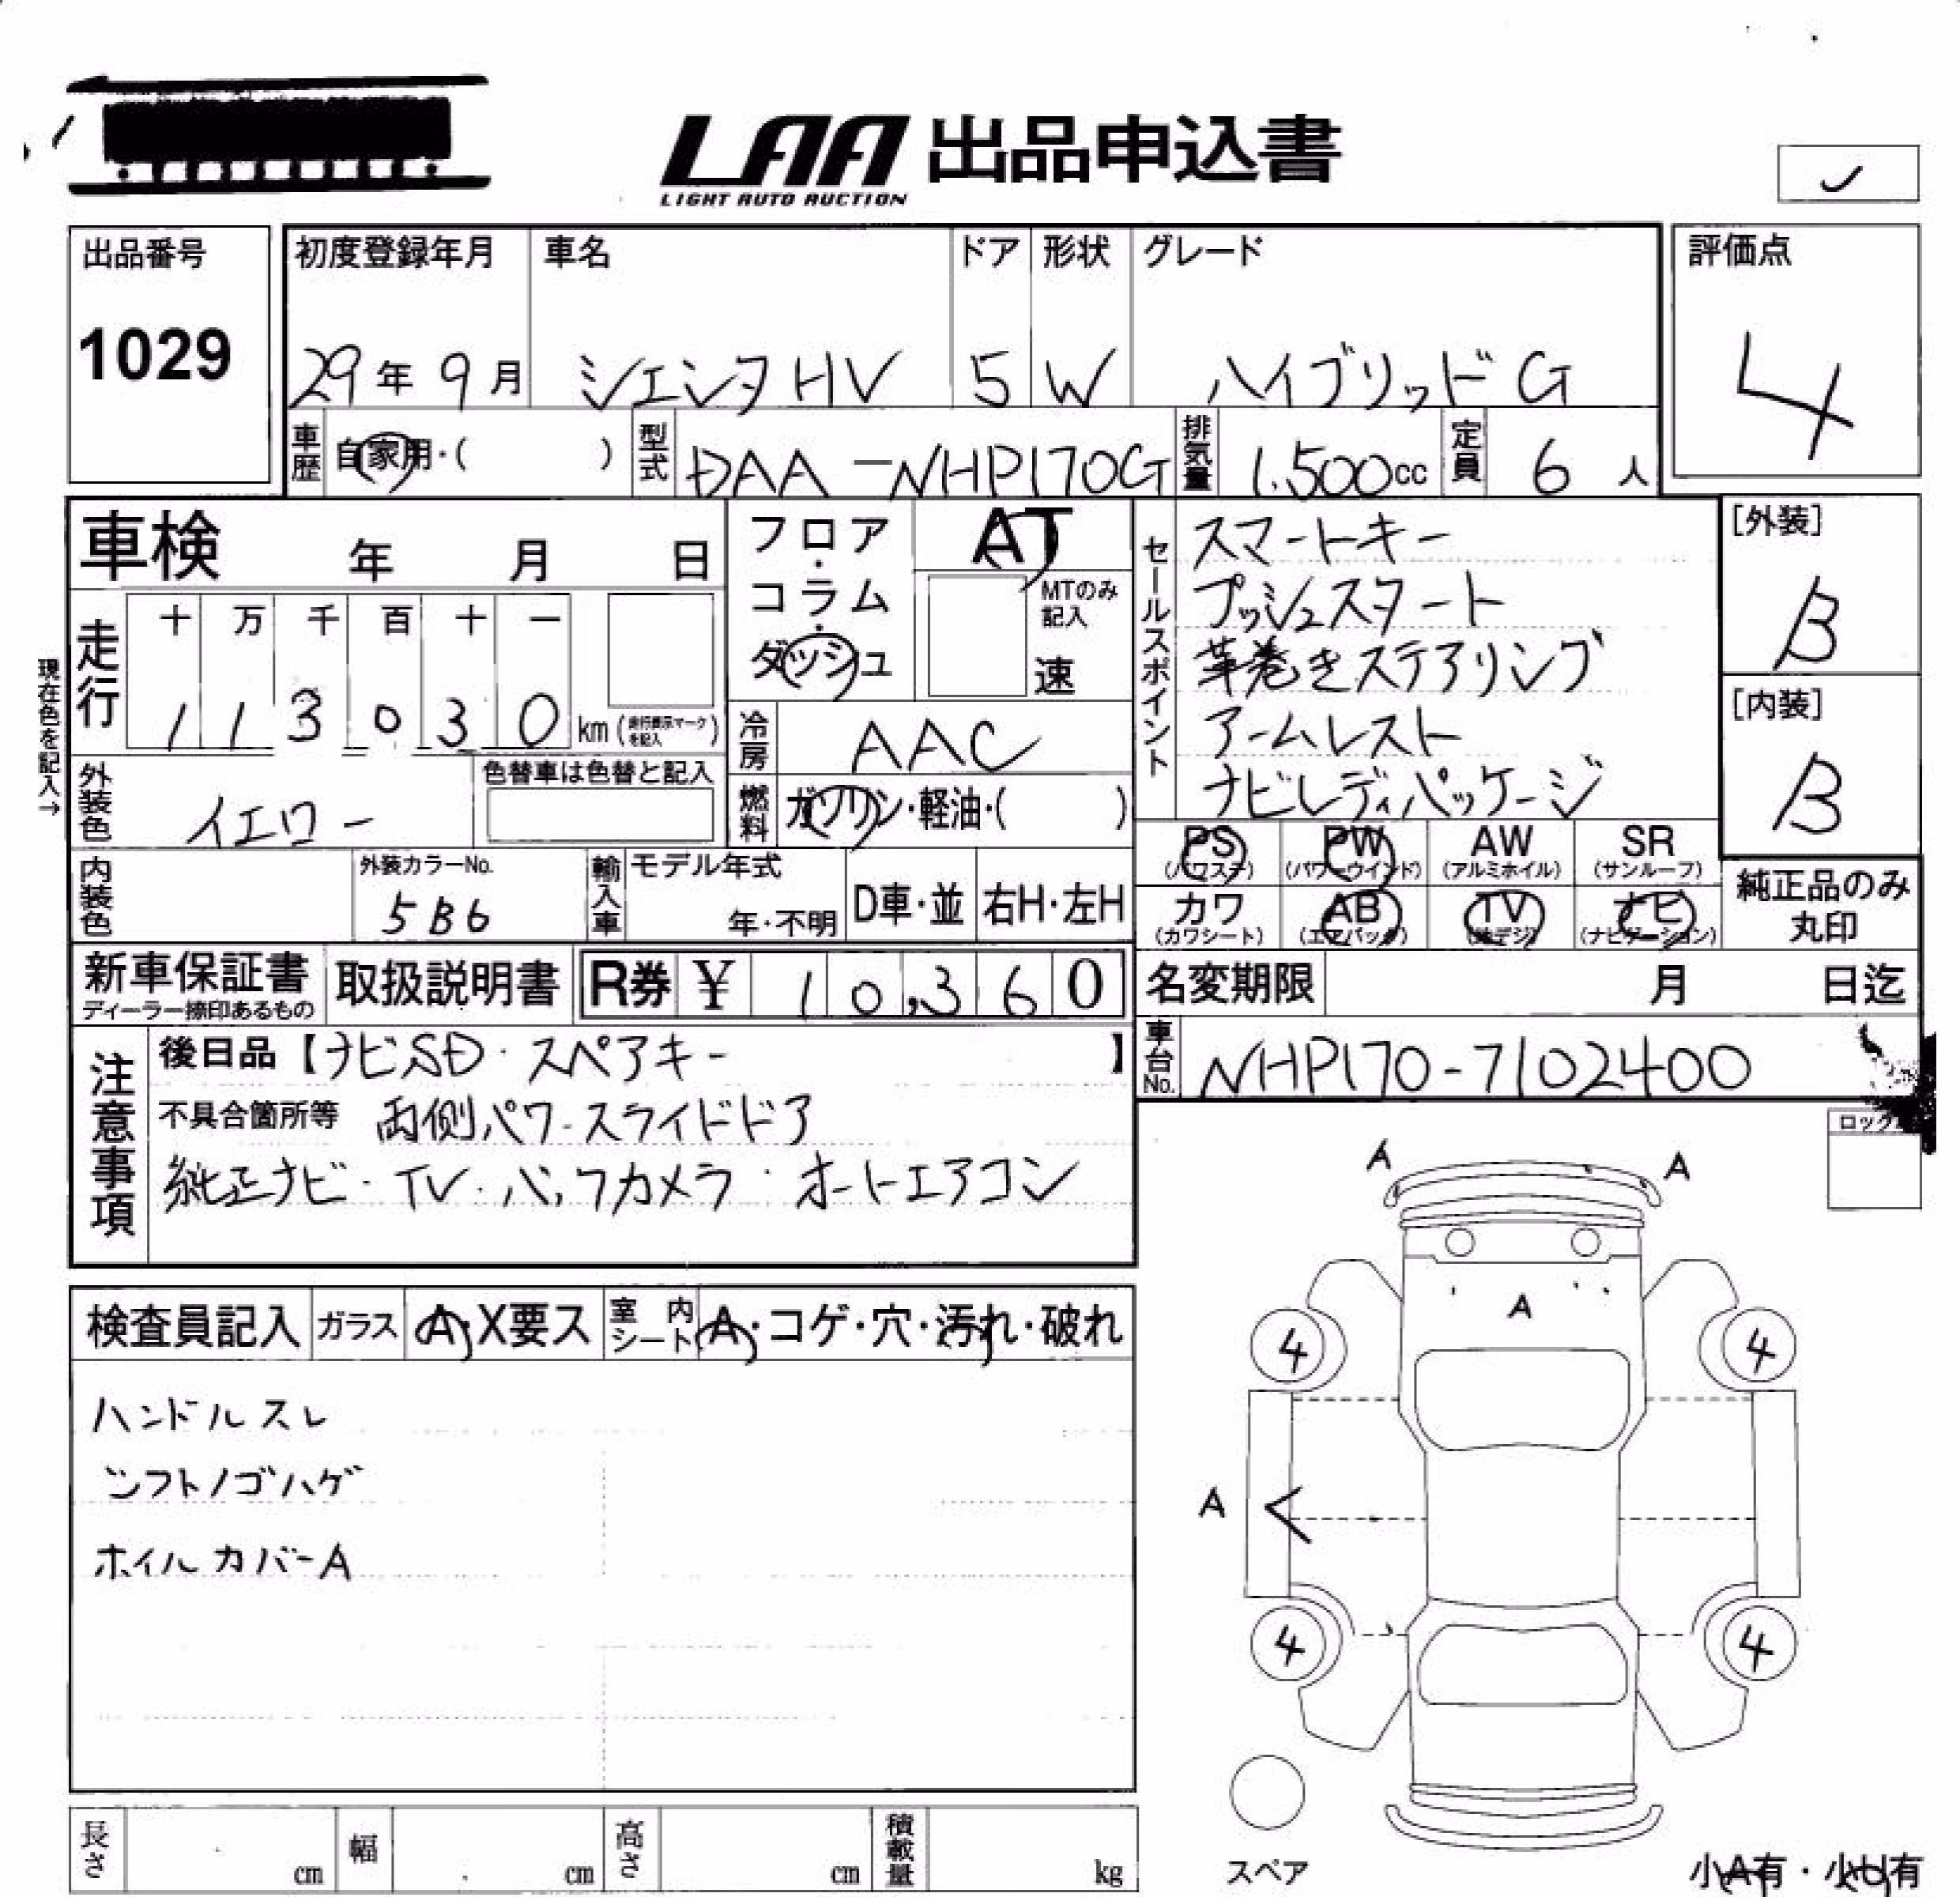 LAA 出品申込書
LIGHT AUTO AUCTION
出品番号
1029
初度登録年月 車名 ドア 形状 グレード
29年 9月 シエンタHV 5 W ハイブリッドG
評価点
4
車歴 自家用・( ) 型式 DAA-NHP170G 排気量 1,500cc 定員 6人
車検 年 月 日
フロア・コラム・ダッシュ
AT
MTのみ記入
速
セールスポイント
スマートキー
プッシュスタート
革巻きステアリング
アームレスト
ナビレディパッケージ
[外装]
B
[内装]
B
現在色を記入→
走行
十 万 千 百 十 一
1 1 3 0 3 0 km (走行表示マークを記入)
冷房 AAC
外装色 イエロー
色替車は色替と記入
燃料 ガソリン・軽油・( )
PS (パワステ) PW (パワーウインド) AW (アルミホイル) SR (サンルーフ)
カワ (カワシート) AB (エアバック) TV (地デジ) ナビ (ナビゲーション)
純正品のみ
丸印
内装色
外装カラーNo.
5B6
輸入車 モデル年式
年・不明 D車・並 右H・左H
新車保証書
ディーラー捺印あるもの
取扱説明書
R券 ¥ 10,360
名変期限 月 日迄
車台No. NHP170-7102400
注意事項
後日品【ナビSD・スペアキー】
不具合箇所等 両側パワースライドドア
純正ナビ・TV・バックカメラ・オートエアコン
ロック
検査員記入 ガラス A・X要ス 室内シート A・コゲ・穴・汚れ・破れ
ハンドルスレ
シフトノブハゲ
ホイルカバーA
A A
A
4 4
A
4 4
スペア
小A有・小U有
長さ cm 幅 cm 高さ cm 積載量 kg